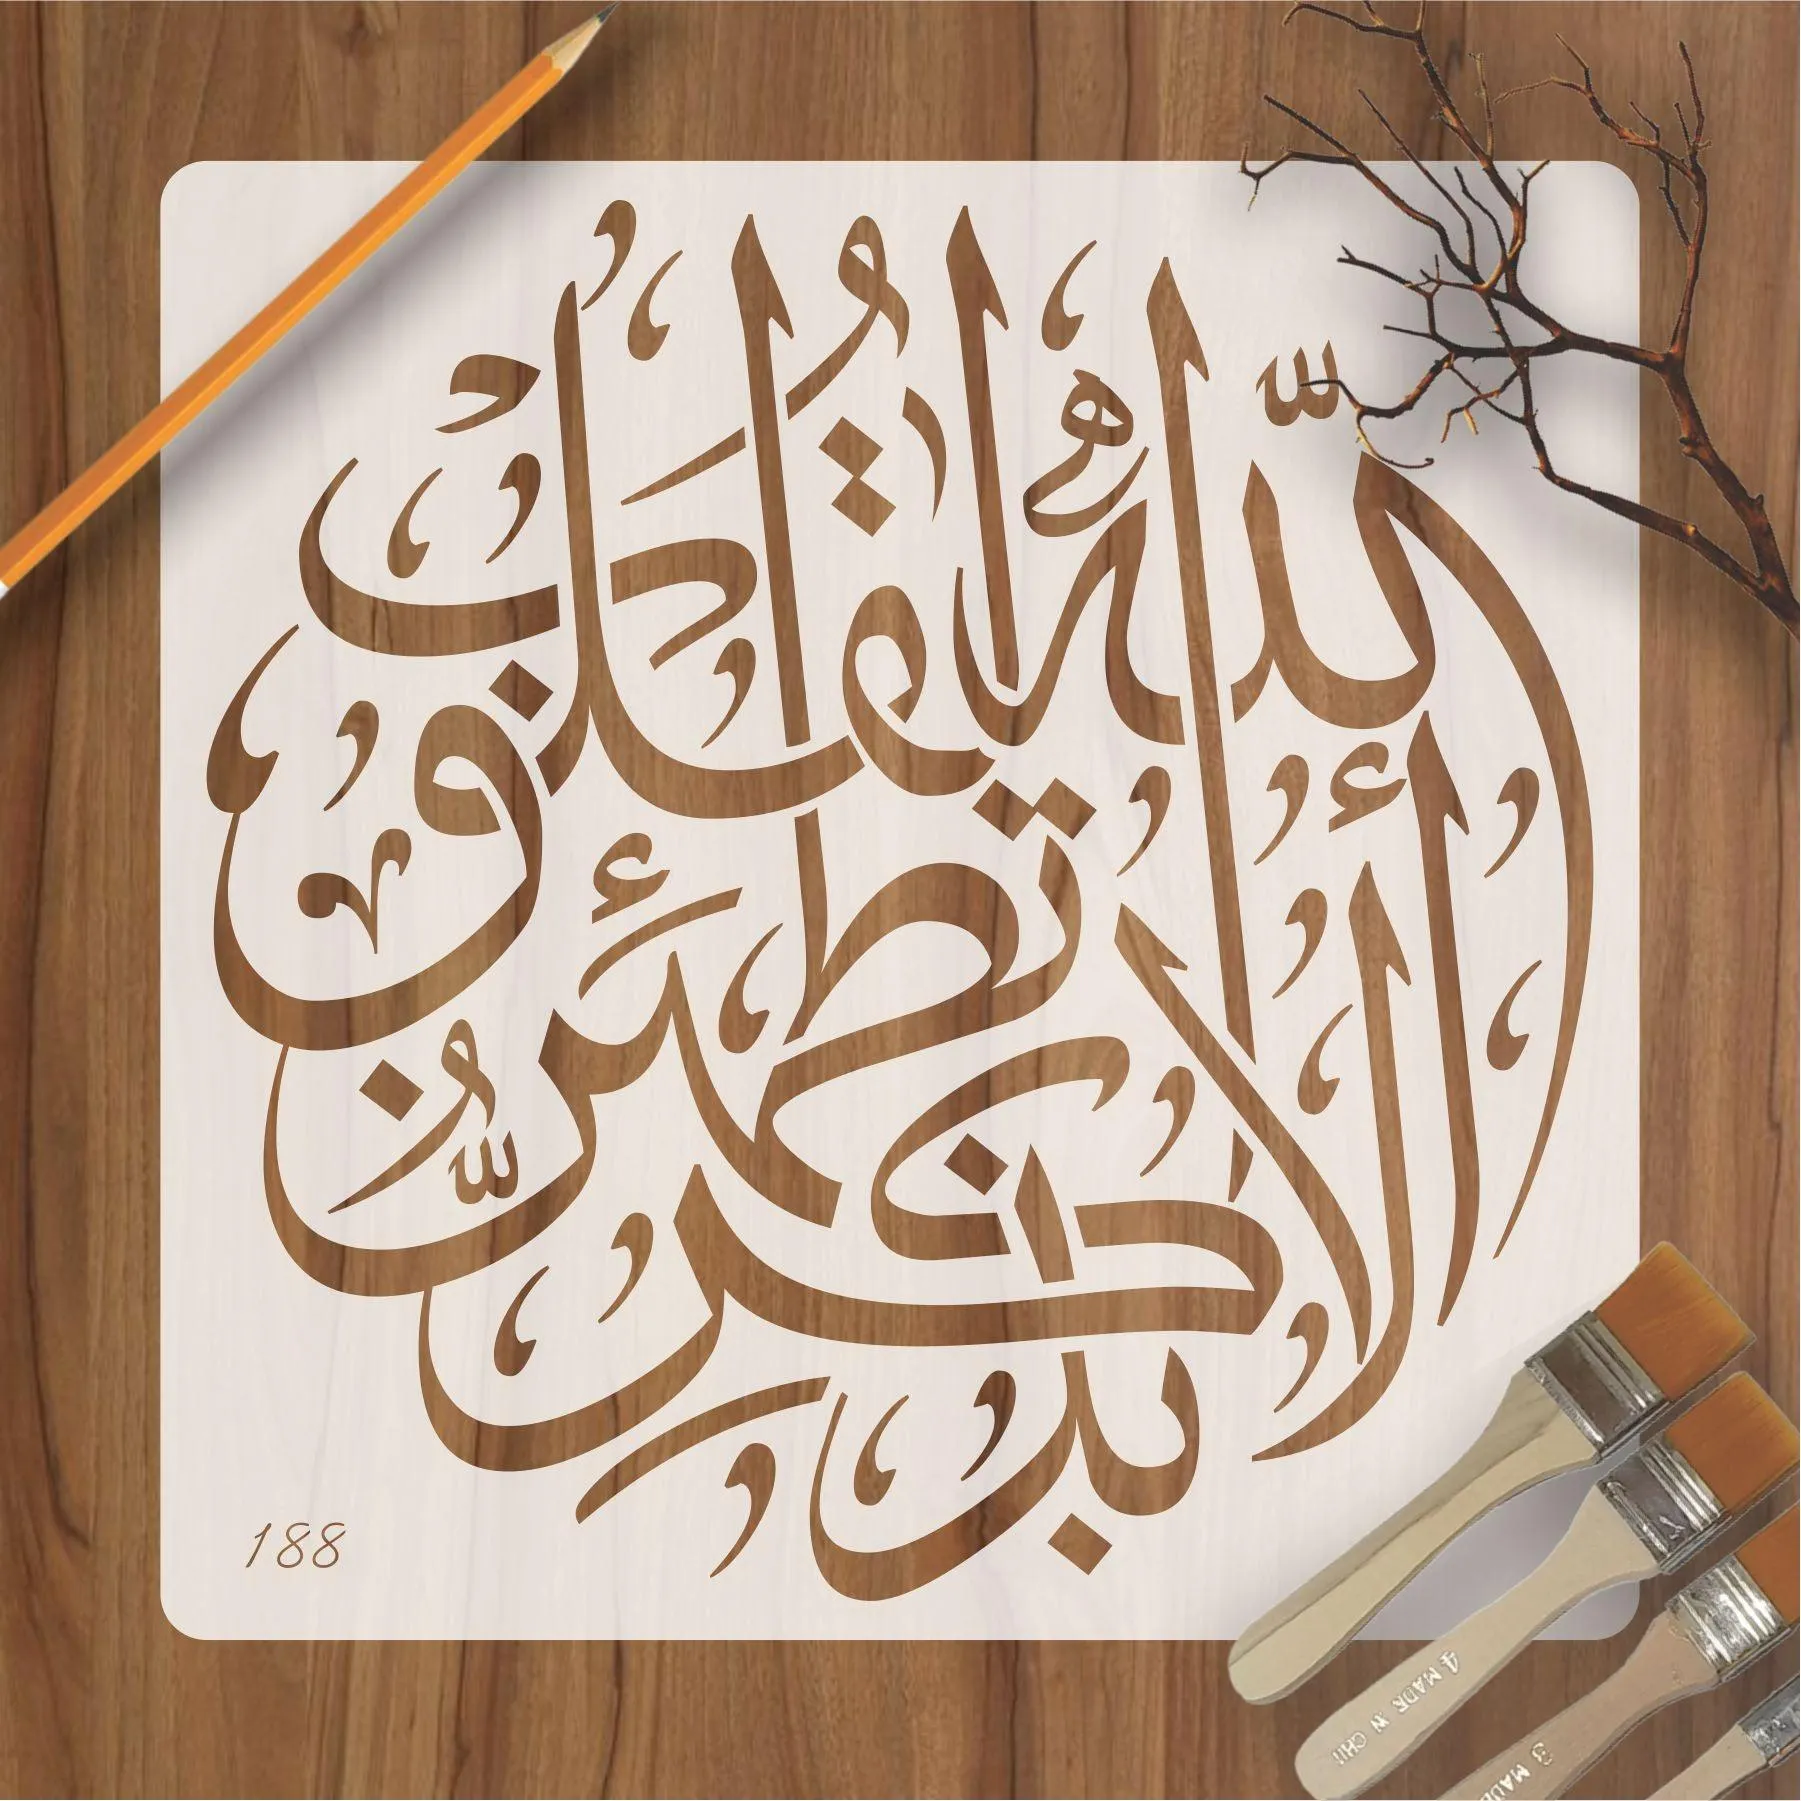 ألا بذكر الله تطمئن القلوب
188
4 MADE .W CHI
3 MADE